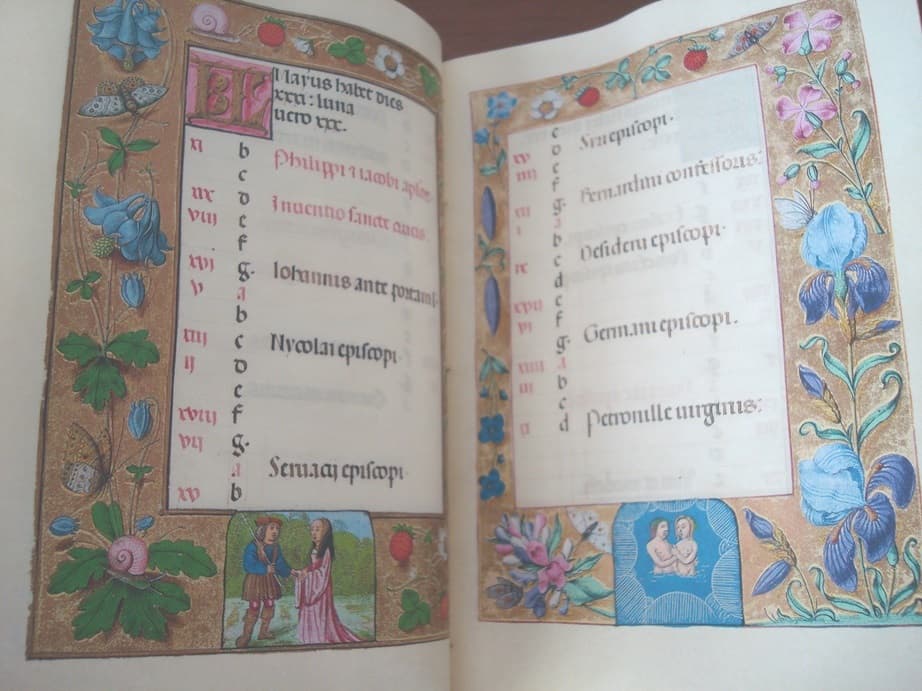 KL Maius habet dies
xxxi: luna
uero xxx.
xi b Philippi ⁊ iacobi aplor
c
ix d Inuentio sancte crucis.
viij e
f
xvi g. Iohannis ante portam l.
v a
b
xiij c Nycolai episcopi.
ij d
e
xviij f
vij g.
a Seruacij episcopi
xv b
c episcopi.
xv d
iiij e
f
xij g. Bernardini confessoris:
i a
b
ix c Desiderii episcopi.
d
xvij e
vi f
g. Germani episcopi.
xiiij a
iij b
c
xi d Petronille uirginis: